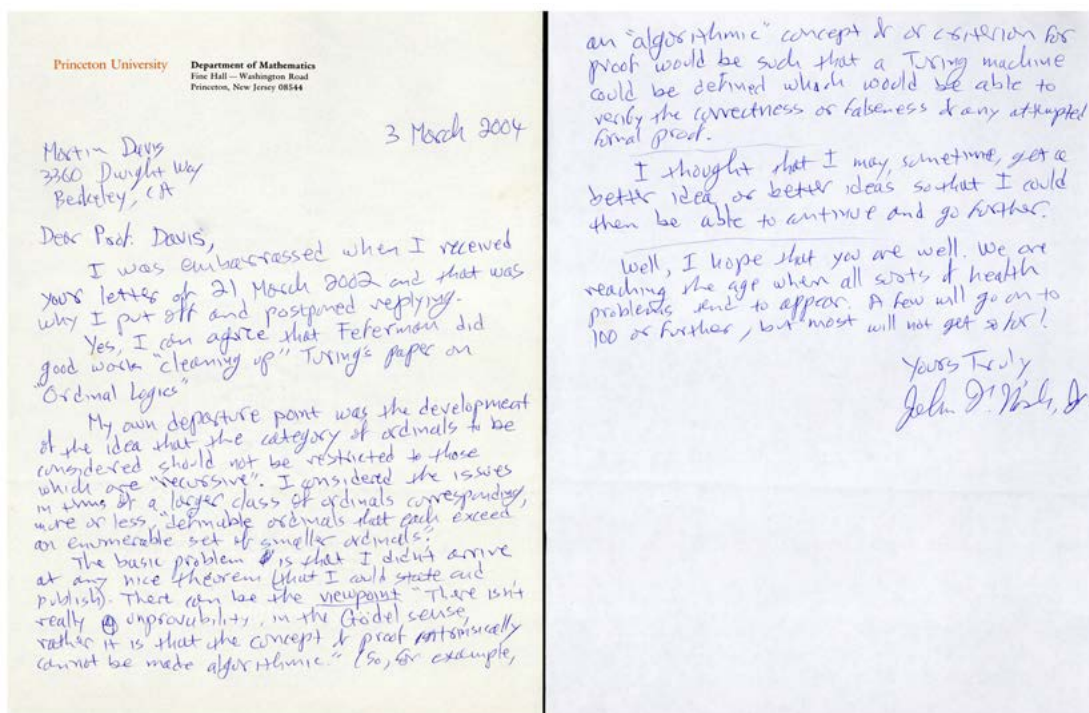 Princeton University
Department of Mathematics
Fine Hall — Washington Road
Princeton, New Jersey 08544
3 March 2004
Martin Davis
3360 Dwight Way
Berkeley, CA
Dear Prof. Davis,
I was embarrassed when I received
your letter of 21 March 2002 and that was
why I put off and postponed replying.
Yes, I can agree that Feferman did
good work "cleaning up" Turing's paper on
"Ordinal Logics"
My own departure point was the development
of the idea that the category of ordinals to be
considered should not be restricted to those
which are "recursive". I considered the issues
in terms of a larger class of ordinals corresponding,
more or less, "definable ordinals that each exceed
an enumerable set of smaller ordinals."
The basic problem is that I didn't arrive
at any nice theorem (that I could state and
publish). There can be the viewpoint "There isn't
really unprovability, in the Gödel sense,
rather it is that the concept of proof intrinsically
cannot be made algorithmic." (So, for example,
an "algorithmic" concept of or criterion for
proof would be such that a Turing machine
could be defined which would be able to
verify the correctness or falseness of any attempted
formal proof.
I thought that I may, sometime, get a
better idea, or better ideas so that I could
then be able to continue and go further.
Well, I hope that you are well. We are
reaching the age when all sorts of health
problems tend to appear. A few will go on to
100 or further, but most will not get so far!
Yours Truly
John F. Nash, Jr